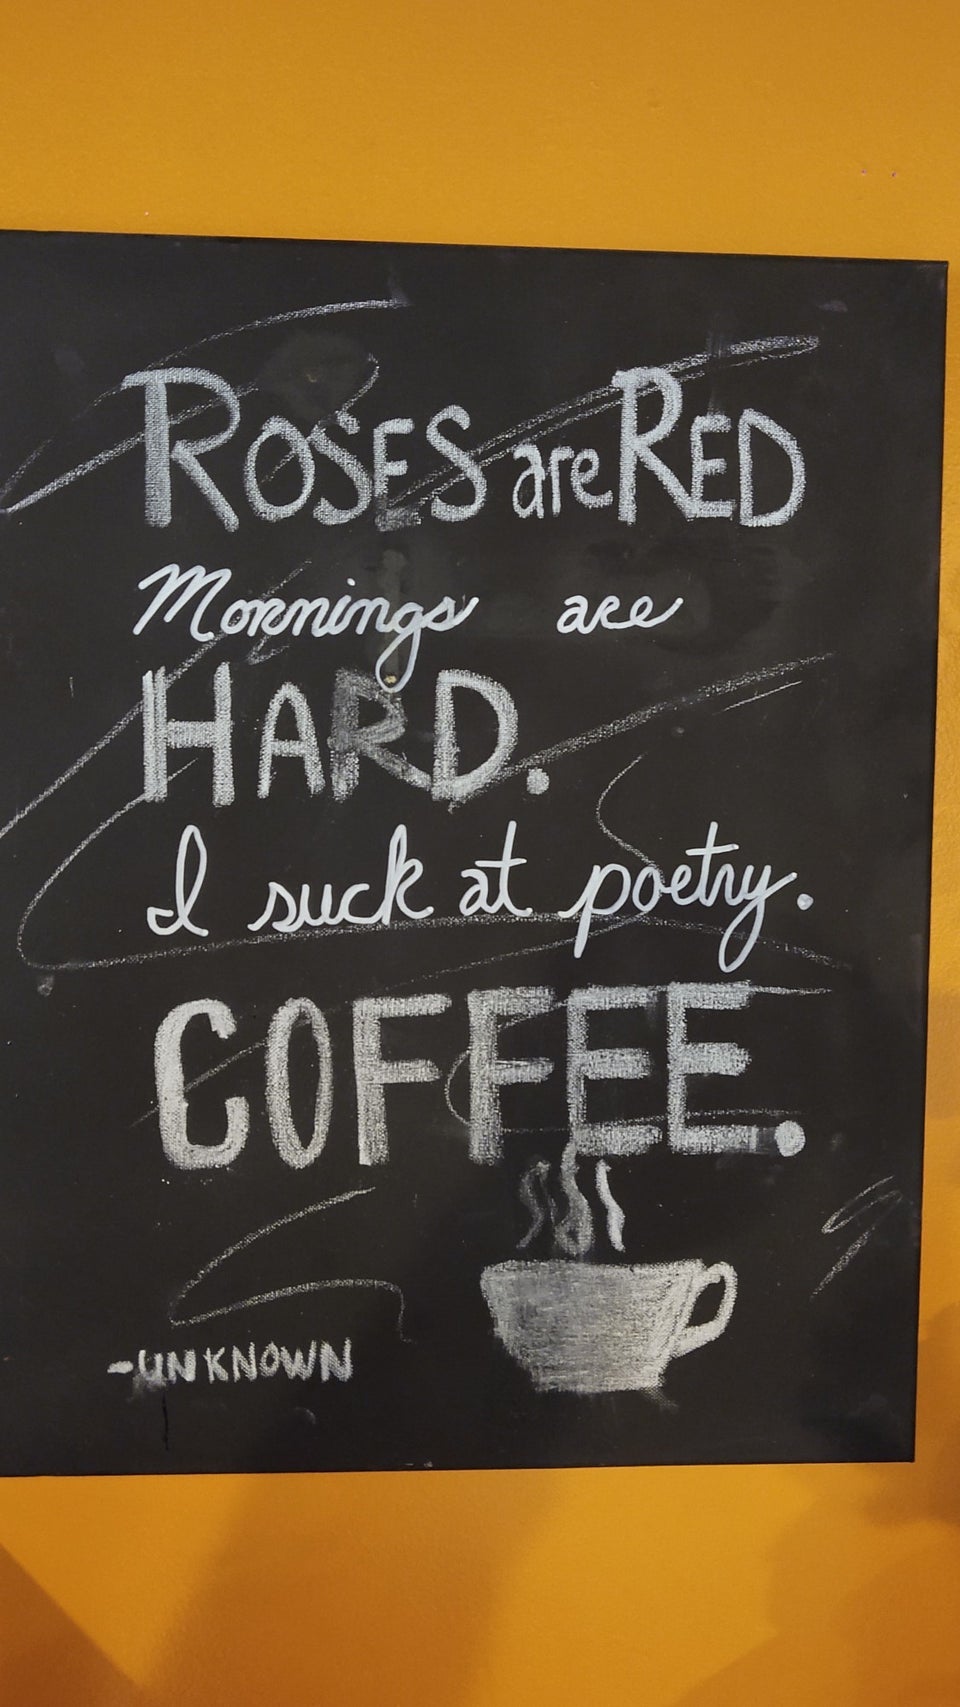 ROSES are RED
Mornings are
HARD.
I suck at poetry.
COFFEE.
-UNKNOWN